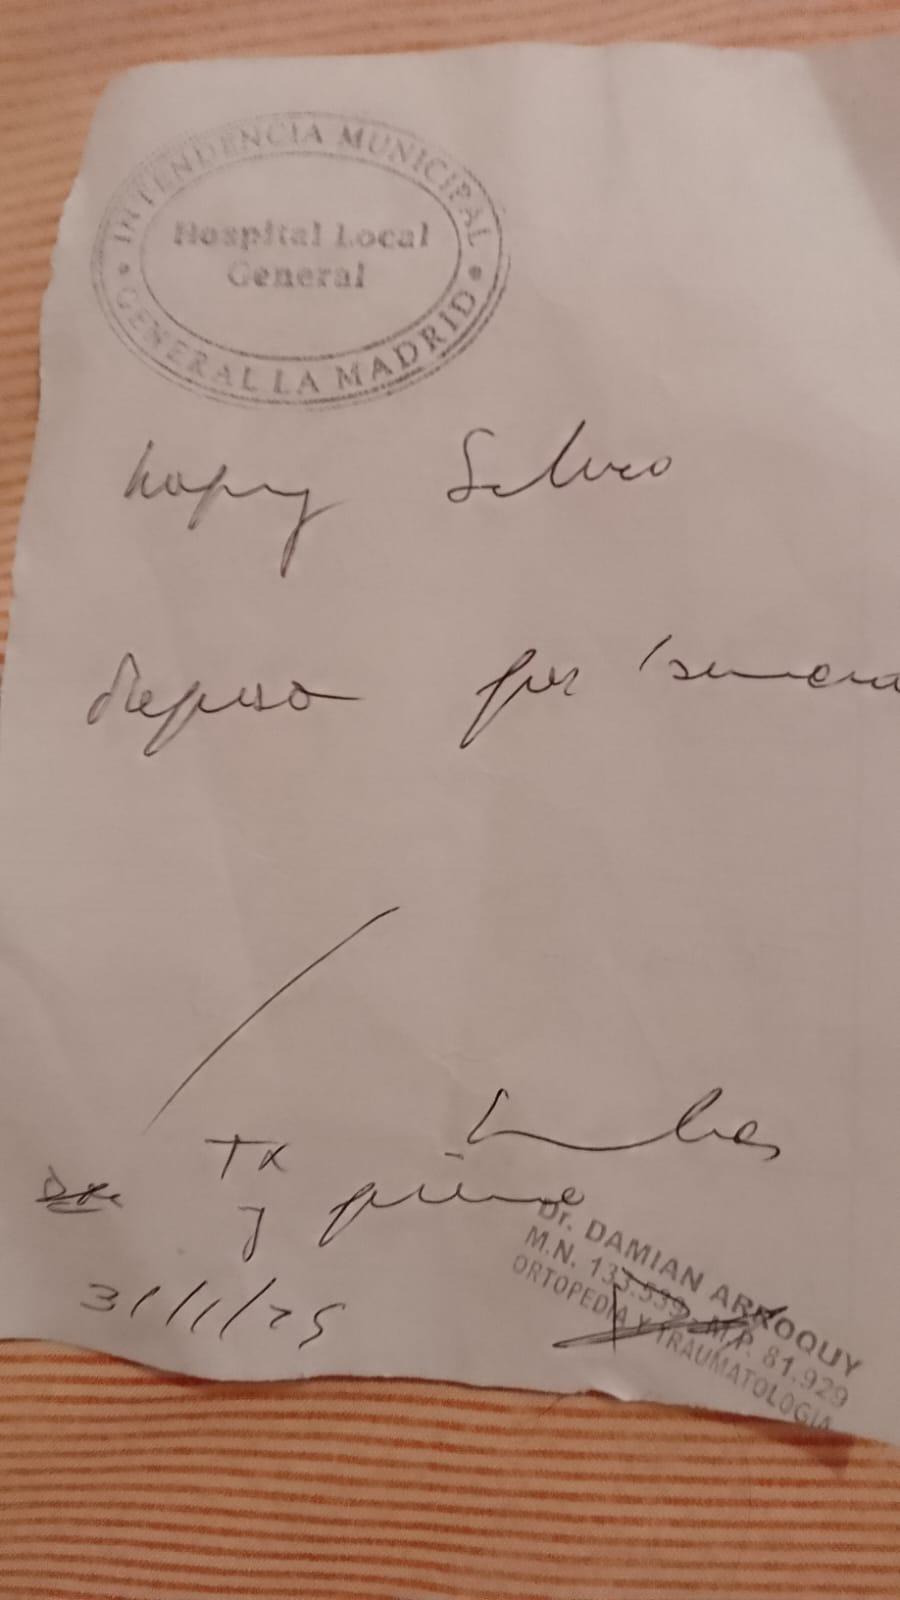 INTENDENCIA MUNICIPAL
Hospital Local
General
GENERAL LA MADRID
Reposo por 1 semana
Tx
y pierna
31/1/25
Dr. DAMIAN ARROQUY
M.N. 133.539 M.P. 81.929
ORTOPEDIA Y TRAUMATOLOGIA